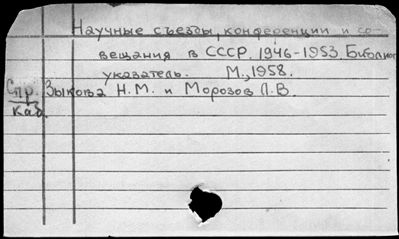 Научные съезды, конференции и со-
вещания в СССР. 1946-1953. Библиог
указатель. М., 1958.
Спр. Зыкова Н.М. и Морозов Л.В.
Каб.